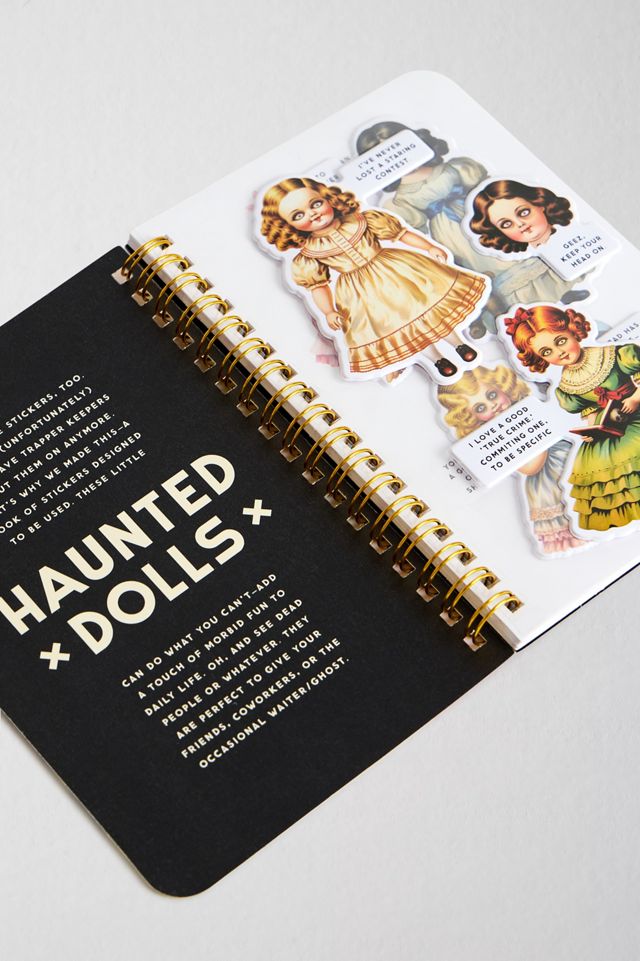 E STICKERS, TOO.
(UNFORTUNATELY)
AVE TRAPPER KEEPERS
UT THEM ON ANYMORE.
AT'S WHY WE MADE THIS—A
OOK OF STICKERS DESIGNED
TO BE USED. THESE LITTLE
HAUNTED
× DOLLS ×
CAN DO WHAT YOU CAN'T—ADD
A TOUCH OF MORBID FUN TO
DAILY LIFE. OH, AND SEE DEAD
PEOPLE OR WHATEVER. THEY
ARE PERFECT TO GIVE YOUR
FRIENDS, COWORKERS, OR THE
OCCASIONAL WAITER/GHOST.
I'VE NEVER
LOST A STARING
CONTEST
GEEZ,
KEEP YOUR
HEAD ON.
I LOVE A GOOD
'TRUE CRIME.'
COMMITING ONE,
TO BE SPECIFIC